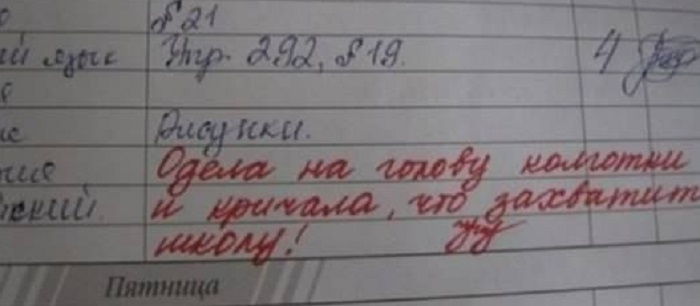 §21
ий язык Упр. 292, §19. 4
Рисунки.
ния Одела на голову колготки
ский и кричала, что захватит
школу!
Пятница